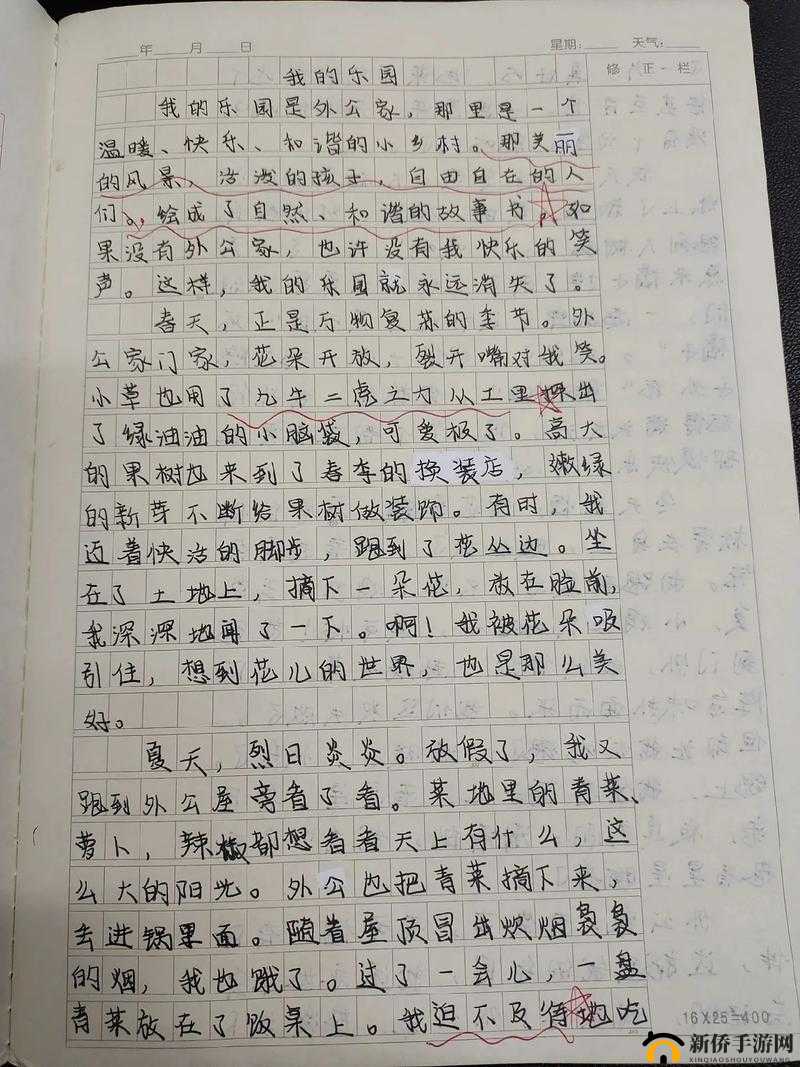 年 月 日 星期： 天气：
修正栏
我的乐园
我的乐园是外公家，那里是一个
温暖、快乐、和谐的小乡村。那美丽
的风景，活泼的孩子，自由自在的人
们。，绘成了自然、和谐的故事书。如
果没有外公家，也许没有我快乐的笑
声。这样，我的乐园就永远消失了。
春天，正是万物复苏的季节。外
公家门家，花朵开放，裂开嘴对我笑。
小草也用了九牛二虎之力从土里探出
了绿油油的小脑袋，可爱极了。高大
的果树也来到了春季的换装店，嫩绿
的新芽不断给果树做装饰。有时，我
迈着快活的脚步，跑到了花丛边。坐
在了土地上，摘下一朵花，放在脸前，
我深深地闻了一下。啊！我被花朵吸
引住，想到花儿的世界，也是那么美
好。
夏天，烈日炎炎。放假了，我又
跑到外公屋旁看了看。菜地里的青菜、
萝卜，辣椒都想看看天上有什么，这
么大的阳光。外公也把青菜摘下来，
去进锅里面。随着屋顶冒出炊烟袅袅
的烟，我也饿了。过了一会儿，一盘
青菜放在了饭桌上。我迫不及待地吃
16X25=400
新侨手游网
XINQIAOSHOUYOUWANG